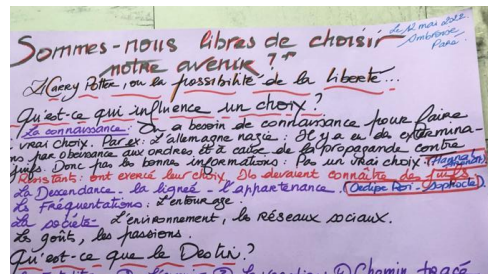 Le 12 mai 2022
Ambroise
Paré
Sommes-nous libres de choisir
notre avenir ?"
Harry Potter, ou la possibilité de la liberté...
Qu'est-ce qui influence un choix ?
La connaissance : On a besoin de connaissance pour faire
vrai choix. Par ex : L'allemagne nazie : Il y a eu des extermina-
ns par obeisance aux ordres et à cause de la propagande contre
juifs. Donc pas les bonnes informations : Pas un vrai choix. Hanna
Résistant : ont exercé leur choix. Ils devaient connaître des juifs
La Descendance - la lignée - l'appartenance. Oedipe Roi - Sophocle
Les Fréquentations : L'entourage.
La société - L'environnement, les Réseaux sociaux.
Le goût, les passions.
Qu'est-ce que le Destin ?
Chemin tracé